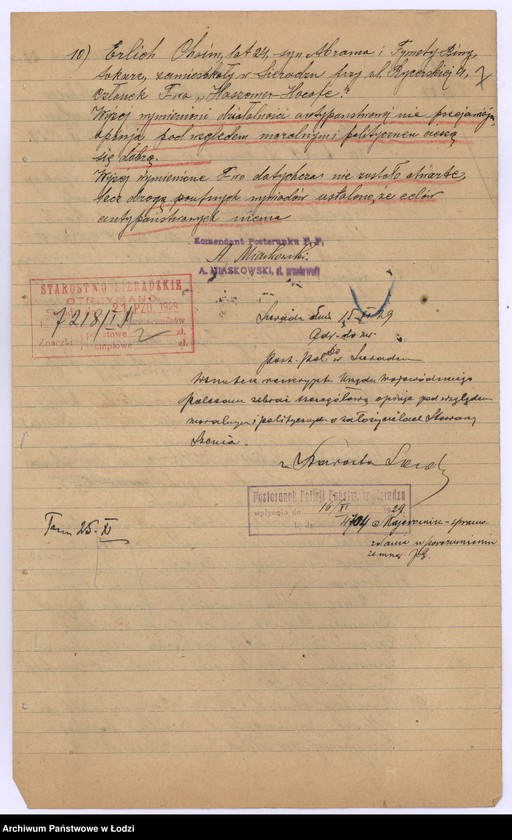 10) Erlich Chaim, lat 24, syn Abrama i Fymety Biny,
zamieszkały w Sieradzu przy ul. Rycerskiej 4,
członek T-wa „Haszomer-Hacofe".
Wyżej wymienieni działalności antypaństwowej nie przejawiają,
opinją pod względem moralnym i politycznem cieszą
się dobrą.
Wyżej wymienione T-wo dotychczas nie zostało otwarte,
lecz drogą poufnych wywiadów ustalono, że celów
antypaństwowych niema
Komendant Posterunku P. P.
A. Miaskowski
A. MIASKOWSKI, st. przodownik
STAROSTWO SIERADZKIE
OTRZYMANO
21 PAZD. 1929
7218/II
Znaczki
stemplowe 2 zł.
Sieradz dnia 15 XI 29
Post. Pol. w Sieradzu
Urzędu Wojewódzkiego
polecam zebrać szczegółową opinję pod względem
moralnym i politycznym o założycielach Stowarzy
szenia.
z Starosta
Posterunek Policji Państw. w Sieradzu
wpłynęło dn. 16/XI 1929
L. dz. 4704
Term 25-XI
w porozumieniu
zemną
Archiwum Państwowe w Łodzi